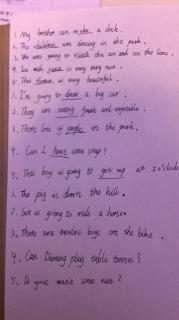 1. My brother can make a desk.
2. The children are dancing in the park.
3. We are going to visit the zoo and see the lions.
4. The with juice is very very nice.
5. This flower is very beautiful.
1. I'm going to draw a big car.
2. They are eating fruit and vegetable.
3. There lots of people in the park.
4. Can I have some soup?
5. This boy is going to get up at 5 o'clock
1. The pig is down the hill.
2. Sam is going to ride a horse.
3. There are twelve boys on the bike.
4. Can Daming play table tennis?
5. Do you want some rice?